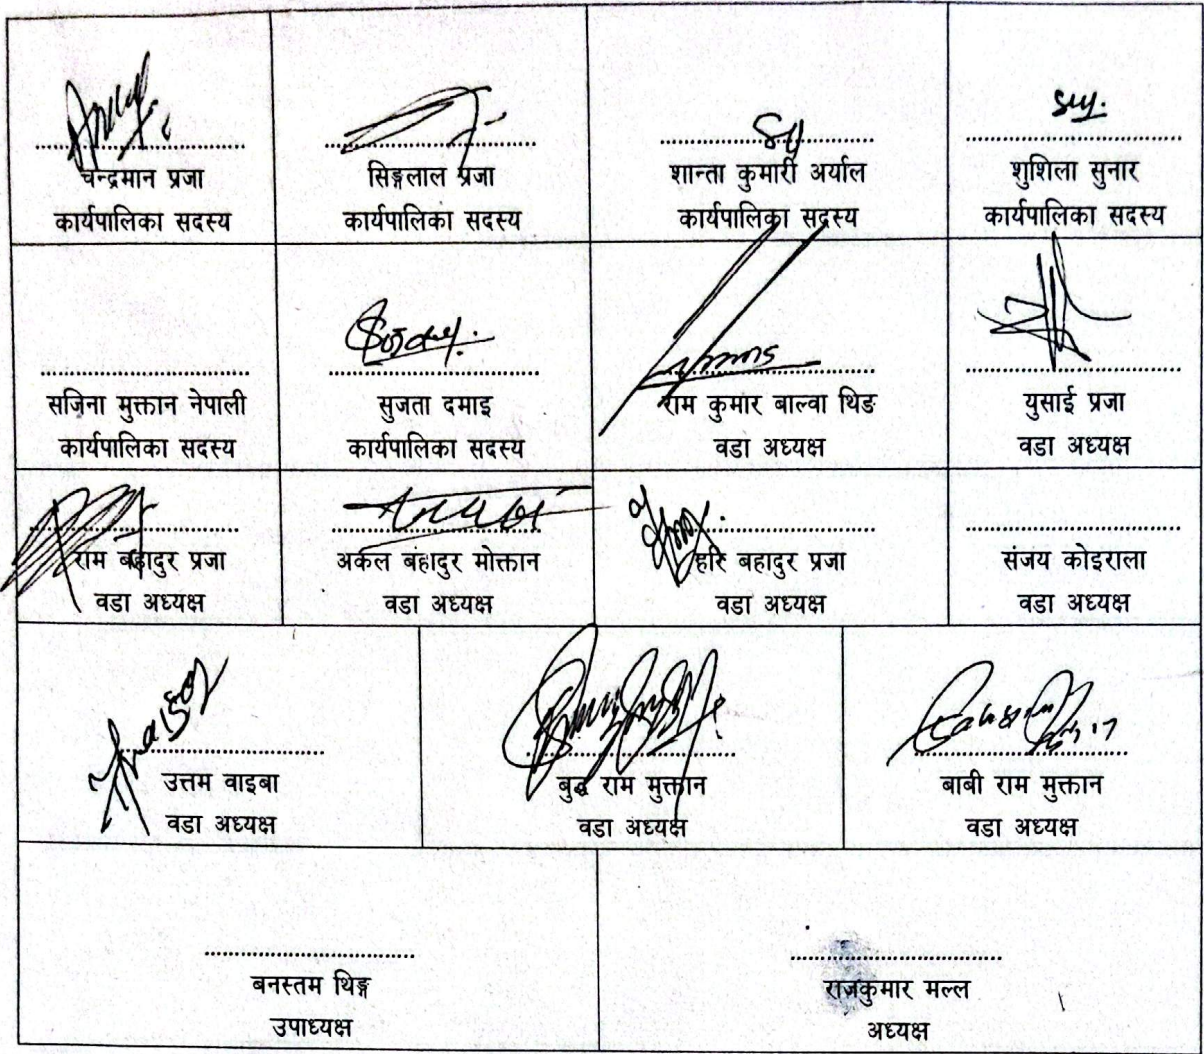 चन्द्रमान प्रजा
कार्यपालिका सदस्य
सिङ्गलाल प्रजा
कार्यपालिका सदस्य
शान्ता कुमारी अर्याल
कार्यपालिका सदस्य
शुशिला सुनार
कार्यपालिका सदस्य
सजिना मुक्तान नेपाली
कार्यपालिका सदस्य
सुजता दमाइ
कार्यपालिका सदस्य
राम कुमार बाल्वा थिङ
वडा अध्यक्ष
युसाई प्रजा
वडा अध्यक्ष
राम बहादुर प्रजा
वडा अध्यक्ष
अर्कल बहादुर मोक्तान
वडा अध्यक्ष
हरि बहादुर प्रजा
वडा अध्यक्ष
संजय कोइराला
वडा अध्यक्ष
उत्तम वाइबा
वडा अध्यक्ष
बुद्ध राम मुक्तान
वडा अध्यक्ष
बाबी राम मुक्तान
वडा अध्यक्ष
बनस्तम थिङ्ग
उपाध्यक्ष
राजकुमार मल्ल
अध्यक्ष